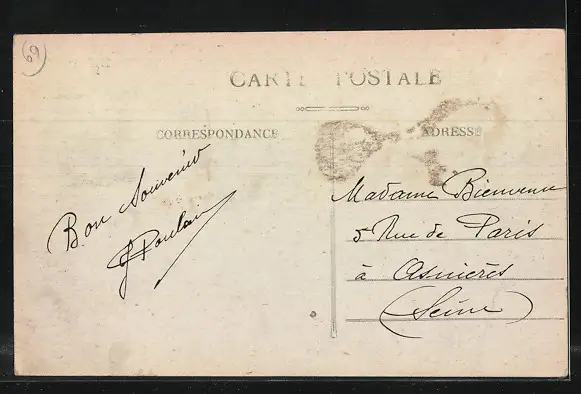 69
CARTE POSTALE
CORRESPONDANCE
ADRESSE
Bon Souvenir
J Poulain
Madame Bienvenu
5 Rue de Paris
à Asnières
(Seine)